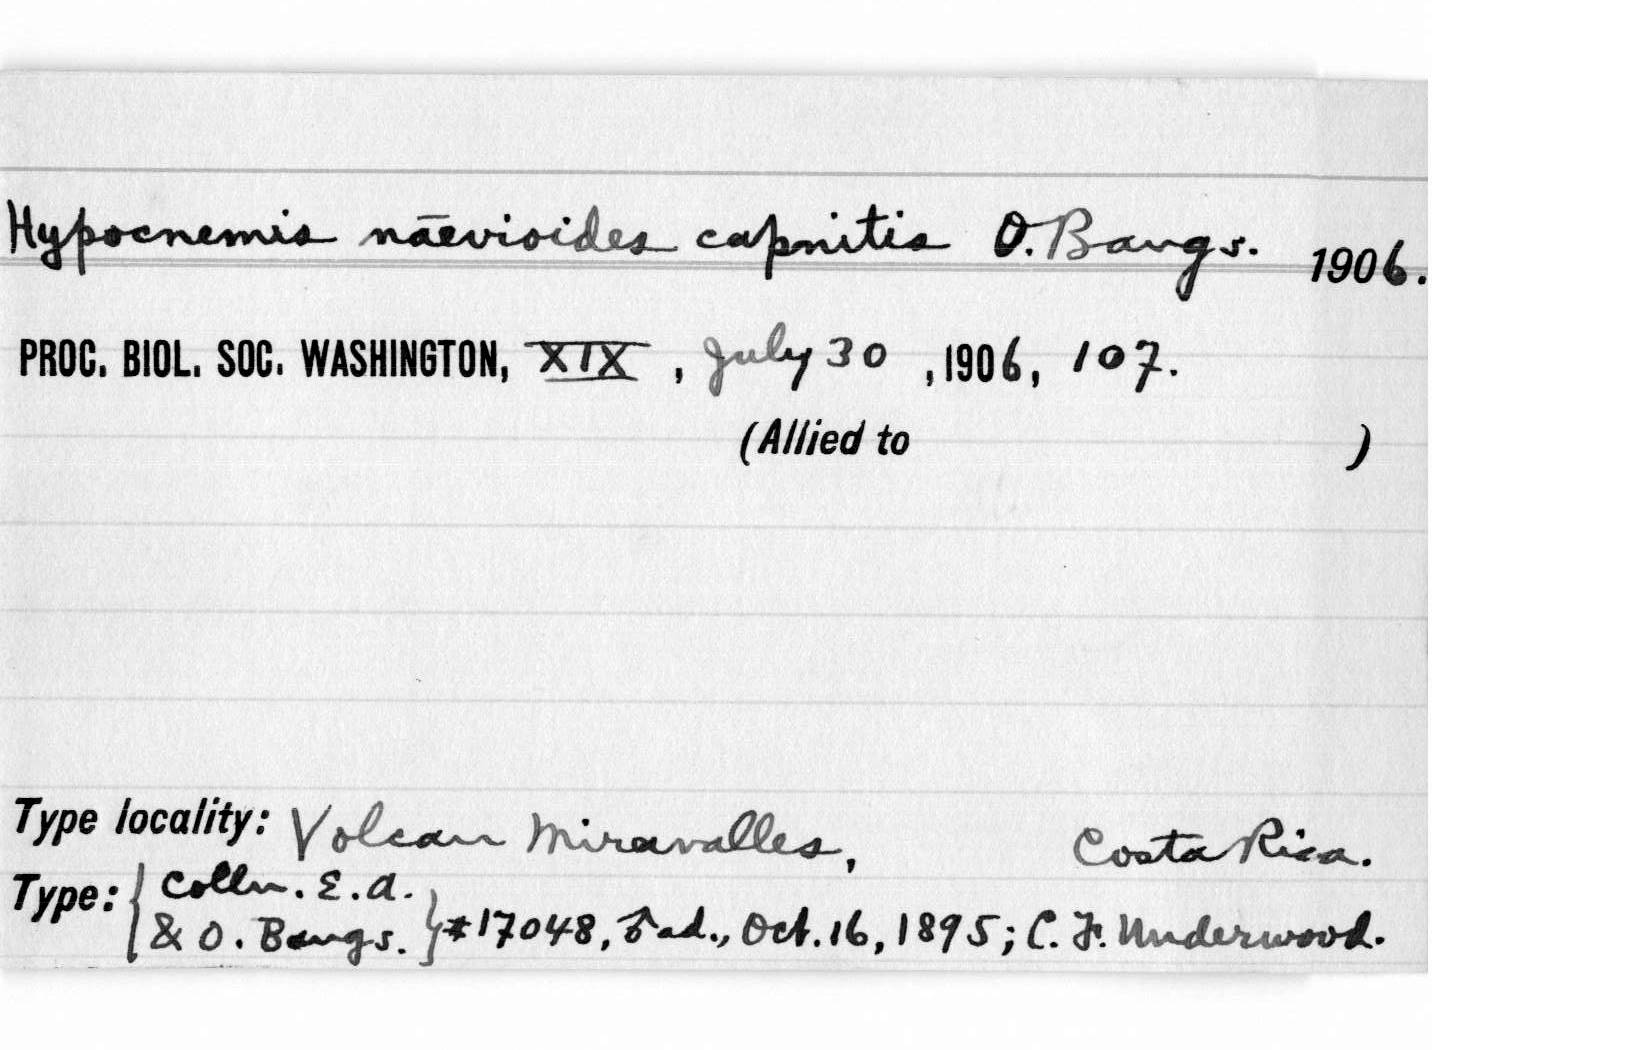 Hypocnemis nāevioides capnitis O. Bangs. 1906.
PROC. BIOL. SOC. WASHINGTON, XIX, July 30, 1906, 107.
(Allied to )
Type locality: Volcan Miravalles, Costa Rica.
Type: { Colln. E.A. & O. Bangs. } #17048, ♂ ad., Oct. 16, 1895; C. F. Underwood.